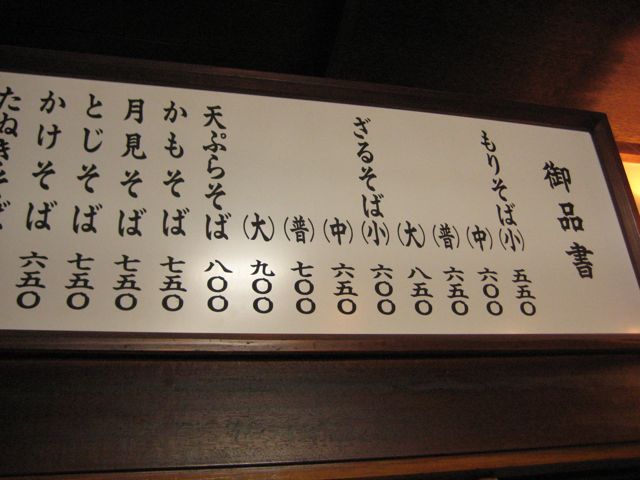 御品書
もりそば(小) 五五〇
(中) 六〇〇
(普) 六五〇
(大) 八五〇
ざるそば(小) 六〇〇
(中) 六五〇
(普) 七〇〇
(大) 九〇〇
天ぷらそば 八〇〇
かもそば 七五〇
月見そば 七五〇
とじそば 七五〇
かけそば 六五〇
たぬきそば